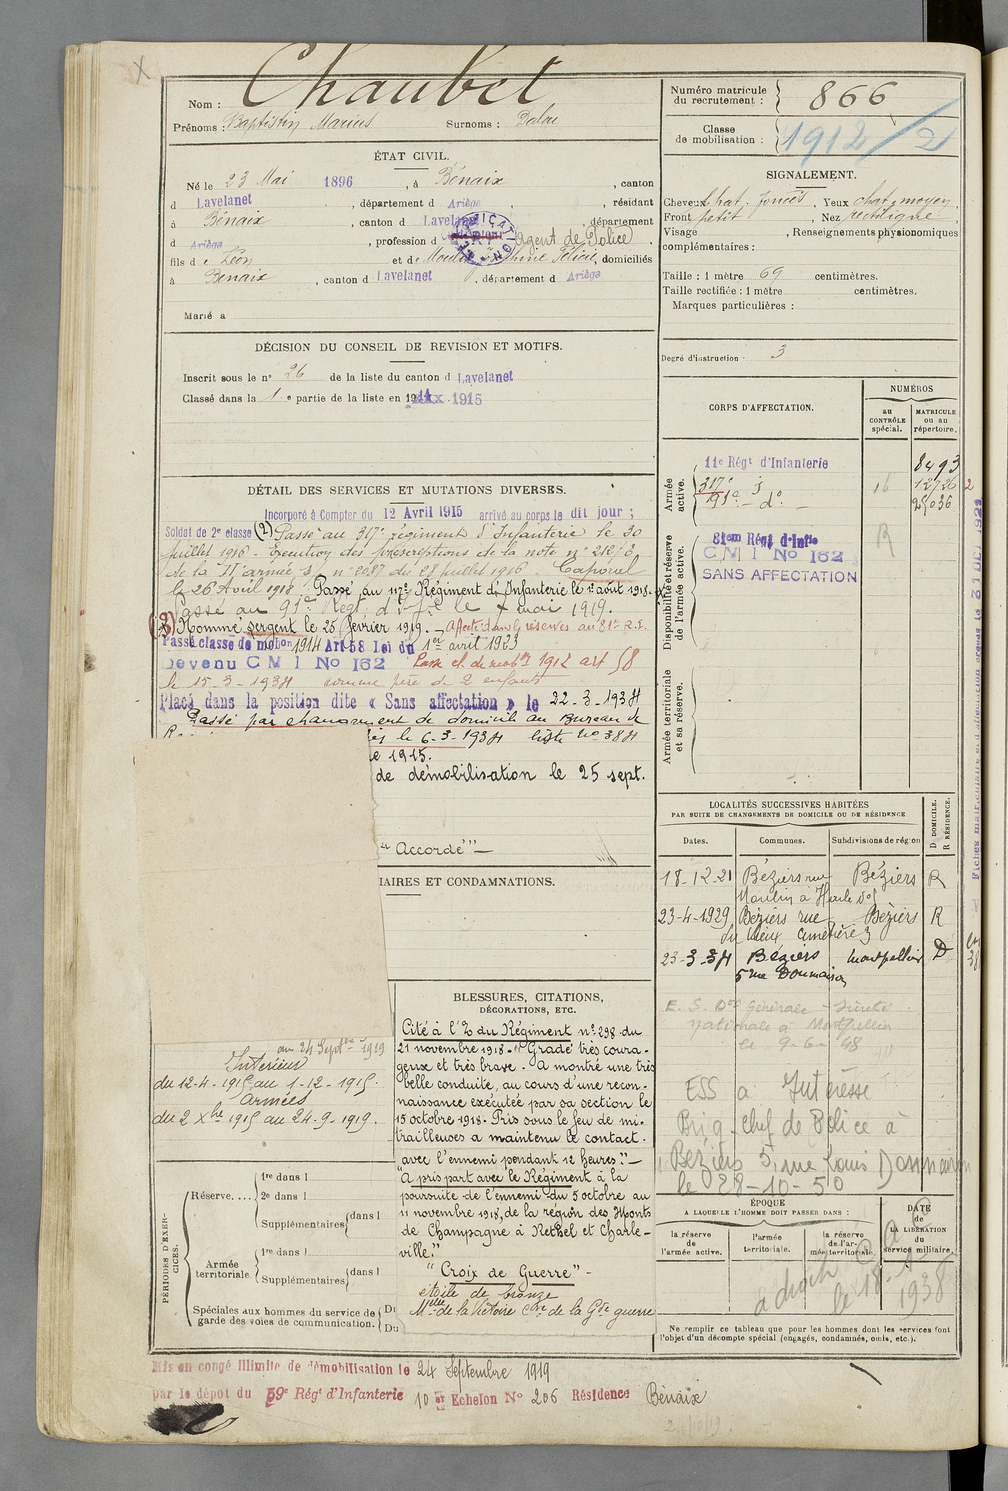 Nom : Chaubet
Prénoms : Baptistin Marius Surnoms : Dalou
ÉTAT CIVIL.
Né le 23 Mai 1896, à Bénaix, canton
d Lavelanet, département d Ariège, résidant
à Bénaix, canton d Lavelanet département
d Ariège, profession d Agent de Police,
fils de Léon et de Félicie, domiciliés
à Benaix, canton d Lavelanet, département d Ariège
Marié à
DÉCISION DU CONSEIL DE REVISION ET MOTIFS.
Inscrit sous le n° 26 de la liste du canton d Lavelanet
Classé dans la 1e partie de la liste en 1915
DÉTAIL DES SERVICES ET MUTATIONS DIVERSES.
Incorporé à Compter du 12 Avril 1915 arrivé au corps le dit jour ;
Soldat de 2e classe (2) Passé au 317e régiment d'Infanterie le 30
juillet 1916. Execution des prescriptions de la note n° 212/3,
de la IIe armée n° 2087 du 28 juillet 1916. Caporal
le 26 Avril 1918. Passé au 117e Régiment d'Infanterie le 1er août 1918.
Passé au 91e Regt d'Ie le 4 mai 1919.
Nommé sergent le 25 février 1919. Affecté dans les réserves au 81e R.I.
Passé classe de mobon 1914 Art 58 Loi du 1er avril 1923
Devenu C M I No 162 Passé cl de mob 1912 art 58
le 15-3-1934 comme père de 2 enfants
Placé dans la position dite « Sans affectation » le 22-3-1934
Passé par changement de domicile au Bureau de
le 6-3-1934 liste no 384
1915.
de démobilisation le 25 sept.
"Accordé"
IAIRES ET CONDAMNATIONS.
au 24 Septbre 1919
Intérieur
du 12-4-1915 au 1-12-1915.
Armées
du 2 Xbre 1915 au 24-9-1919.
BLESSURES, CITATIONS,
DÉCORATIONS, ETC.
Cité à l'O du Régiment n° 298 du
21 novembre 1918 - "Gradé très coura-
geux et très brave. A montré une très
belle conduite, au cours d'une recon-
naissance exécutée par sa section le
15 octobre 1918. Pris sous le feu de mi-
trailleuses a maintenu le contact
avec l'ennemi pendant 12 heures."
"A pris part avec le Régiment à la
poursuite de l'ennemi du 5 octobre au
11 novembre 1918, de la région des Monts
de Champagne à Rethel et Charle-
ville."
"Croix de Guerre" -
étoile de bronze
Mlle de la Victoire Cve de la Gde guerre
PÉRIODES D'EXERCICES.
Réserve.... 1re dans l
2e dans l
Supplémentaires dans l
Armée territoriale. 1re dans l
Supplémentaires dans l
Spéciales aux hommes du service de Du
garde des voies de communication. Du
Mis en congé illimité de démobilisation le 24 Septembre 1919
par le dépôt du 59e Régt d'Infanterie 10 Echelon No 206 Résidence Bénaix
Numéro matricule
du recrutement : 866
Classe
de mobilisation : 1912/2
SIGNALEMENT.
Cheveux chat. foncés, Yeux chat. moyen,
Front petit, Nez rectiligne
Visage , Renseignements physionomiques
complémentaires :
Taille : 1 mètre 69 centimètres.
Taille rectifiée : 1 mètre centimètres.
Marques particulières :
Degré d'instruction : 3
CORPS D'AFFECTATION.
NUMÉROS
au
CONTRÔLE
spécial.
MATRICULE
ou au
répertoire.
Armée active.
11e Régt d'Infanterie 8493
317e 16 12726
91e do 25036
Disponibilité et réserve de l'armée active.
81em Régt d'Infie
C M I No 162 R
SANS AFFECTATION
Armée territoriale et sa réserve.
LOCALITÉS SUCCESSIVES HABITÉES
PAR SUITE DE CHANGEMENTS DE DOMICILE OU DE RÉSIDENCE
Dates. Communes. Subdivisions de région D DOMICILE. R RÉSIDENCE.
18-12-21 Béziers rue Béziers R
Moulin à Huile
23-4-1929 Béziers rue Béziers R
du Vieux Cimetière 3
23-3-34 Béziers Montpellier D
5 rue Doumairon
E. S. Don Générale Sûreté
nationale à Montpellier
le 9-6-48
ESS a Intéressé
Brig. chef de Police à
Béziers 5, rue Louis
le 28-10-50
ÉPOQUE
A LAQUELLE L'HOMME DOIT PASSER DANS :
la réserve
de
l'armée active.
l'armée
territoriale.
la réserve
de l'ar-
mée territoriale.
DATE
de
LA LIBÉRATION
du
service militaire.
le 18 1938
Ne remplir ce tableau que pour les hommes dont les services font
l'objet d'un décompte spécial (engagés, condamnés, omis, etc.).